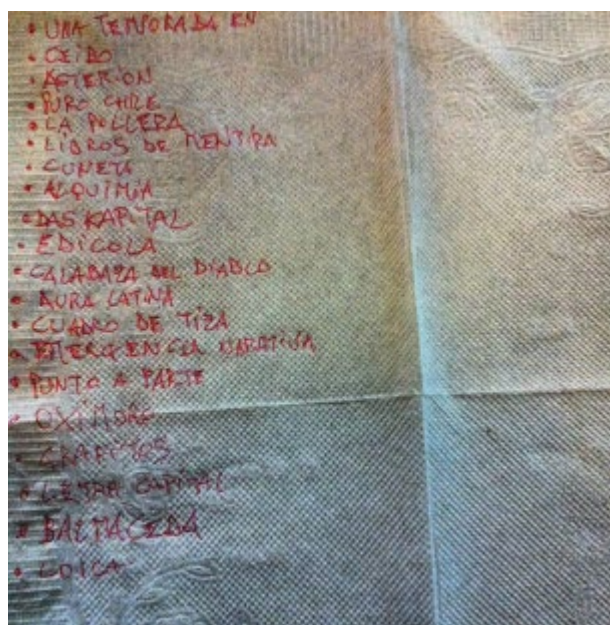 • UNA TEMPORADA EN
• CEIBO
• ASTERION
• PURO CHILE
• LA POLLERA
• LIBROS DE MENTIRA
• CUNETA
• ALQUIMIA
• DAS KAPITAL
• EDICOLA
• CALABAZA DEL DIABLO
• AURA LATINA
• CUADRO DE TIZA
• EMERGENCIA NARRATIVA
• PUNTO A PARTE
• OXIMORO
• GRAFITOS
• LETRA CAPITAL
• BALMACEDA
• LOICA